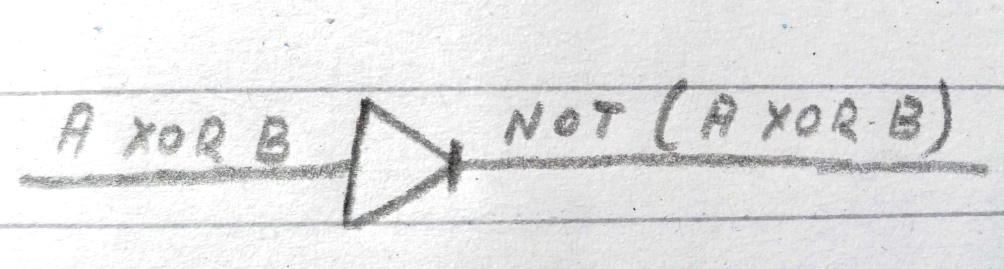 A XOR B
NOT (A XOR B)